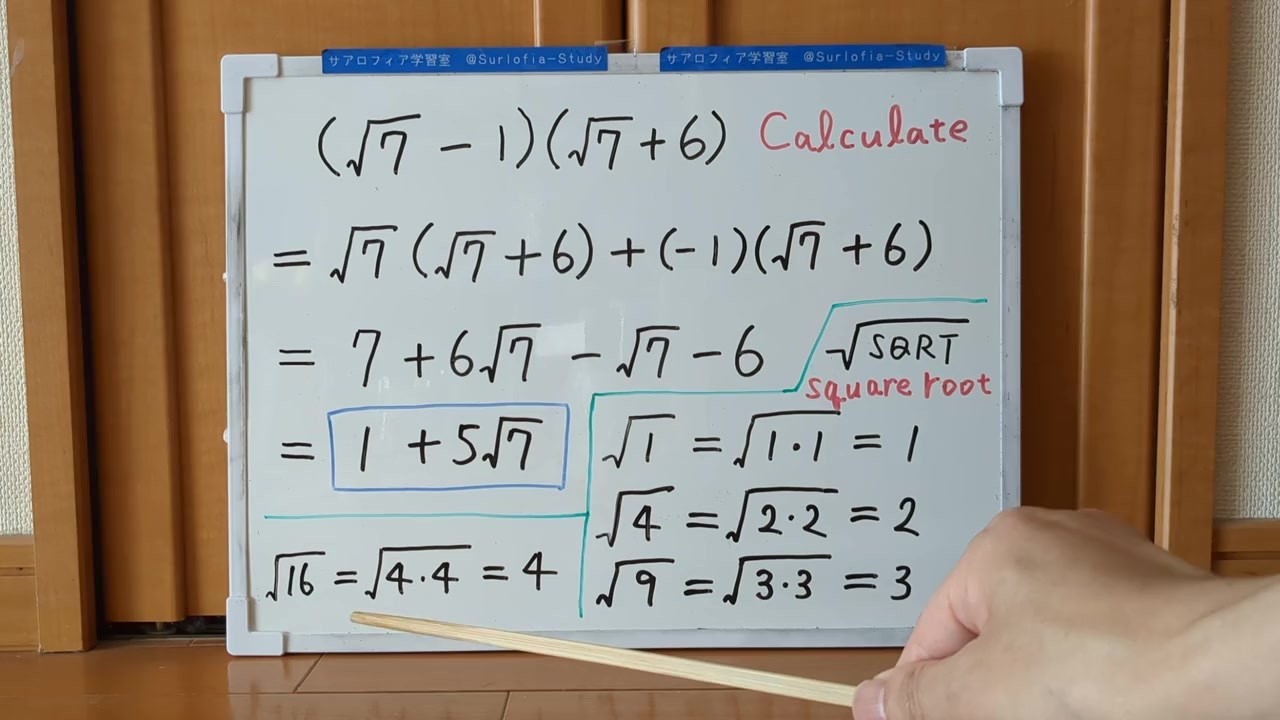 サアロフィア学習室 @Surlofia-Study
サアロフィア学習室 @Surlofia-Study
(√7 - 1)(√7 + 6) Calculate
= √7 (√7 + 6) + (-1)(√7 + 6)
= 7 + 6√7 - √7 - 6
= 1 + 5√7
√SQRT
square root
√1 = √1·1 = 1
√4 = √2·2 = 2
√9 = √3·3 = 3
√16 = √4·4 = 4